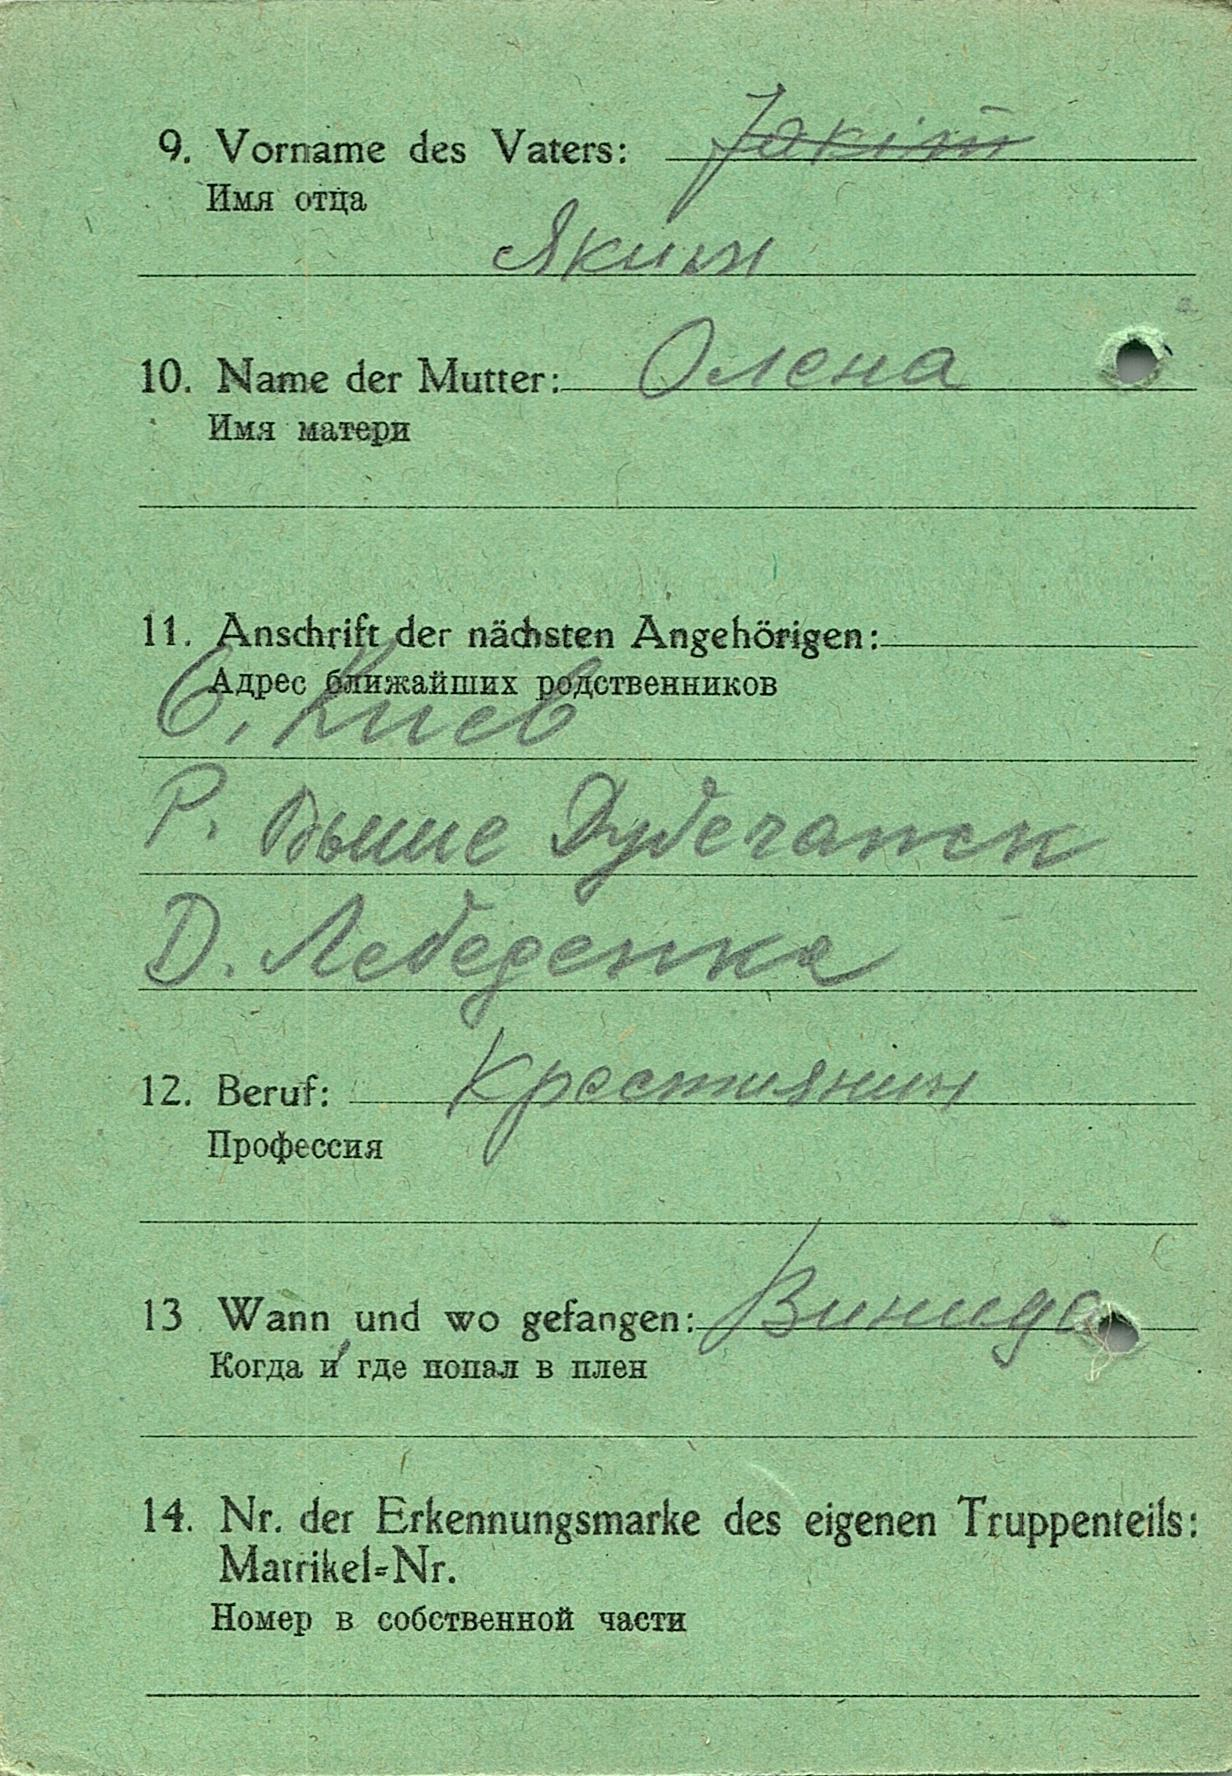 9. Vorname des Vaters: Jakim
Имя отца
Яким
10. Name der Mutter: Олена
Имя матери
11. Anschrift der nächsten Angehörigen:
Адрес ближайших родственников
О. Киев
Р. Выше Дубечанск
Д. Лебеденка
12. Beruf: Крестиянин
Профессия
13 Wann und wo gefangen:
Когда и где попал в плен
14. Nr. der Erkennungsmarke des eigenen Truppenteils:
Matrikel=Nr.
Номер в собственной части